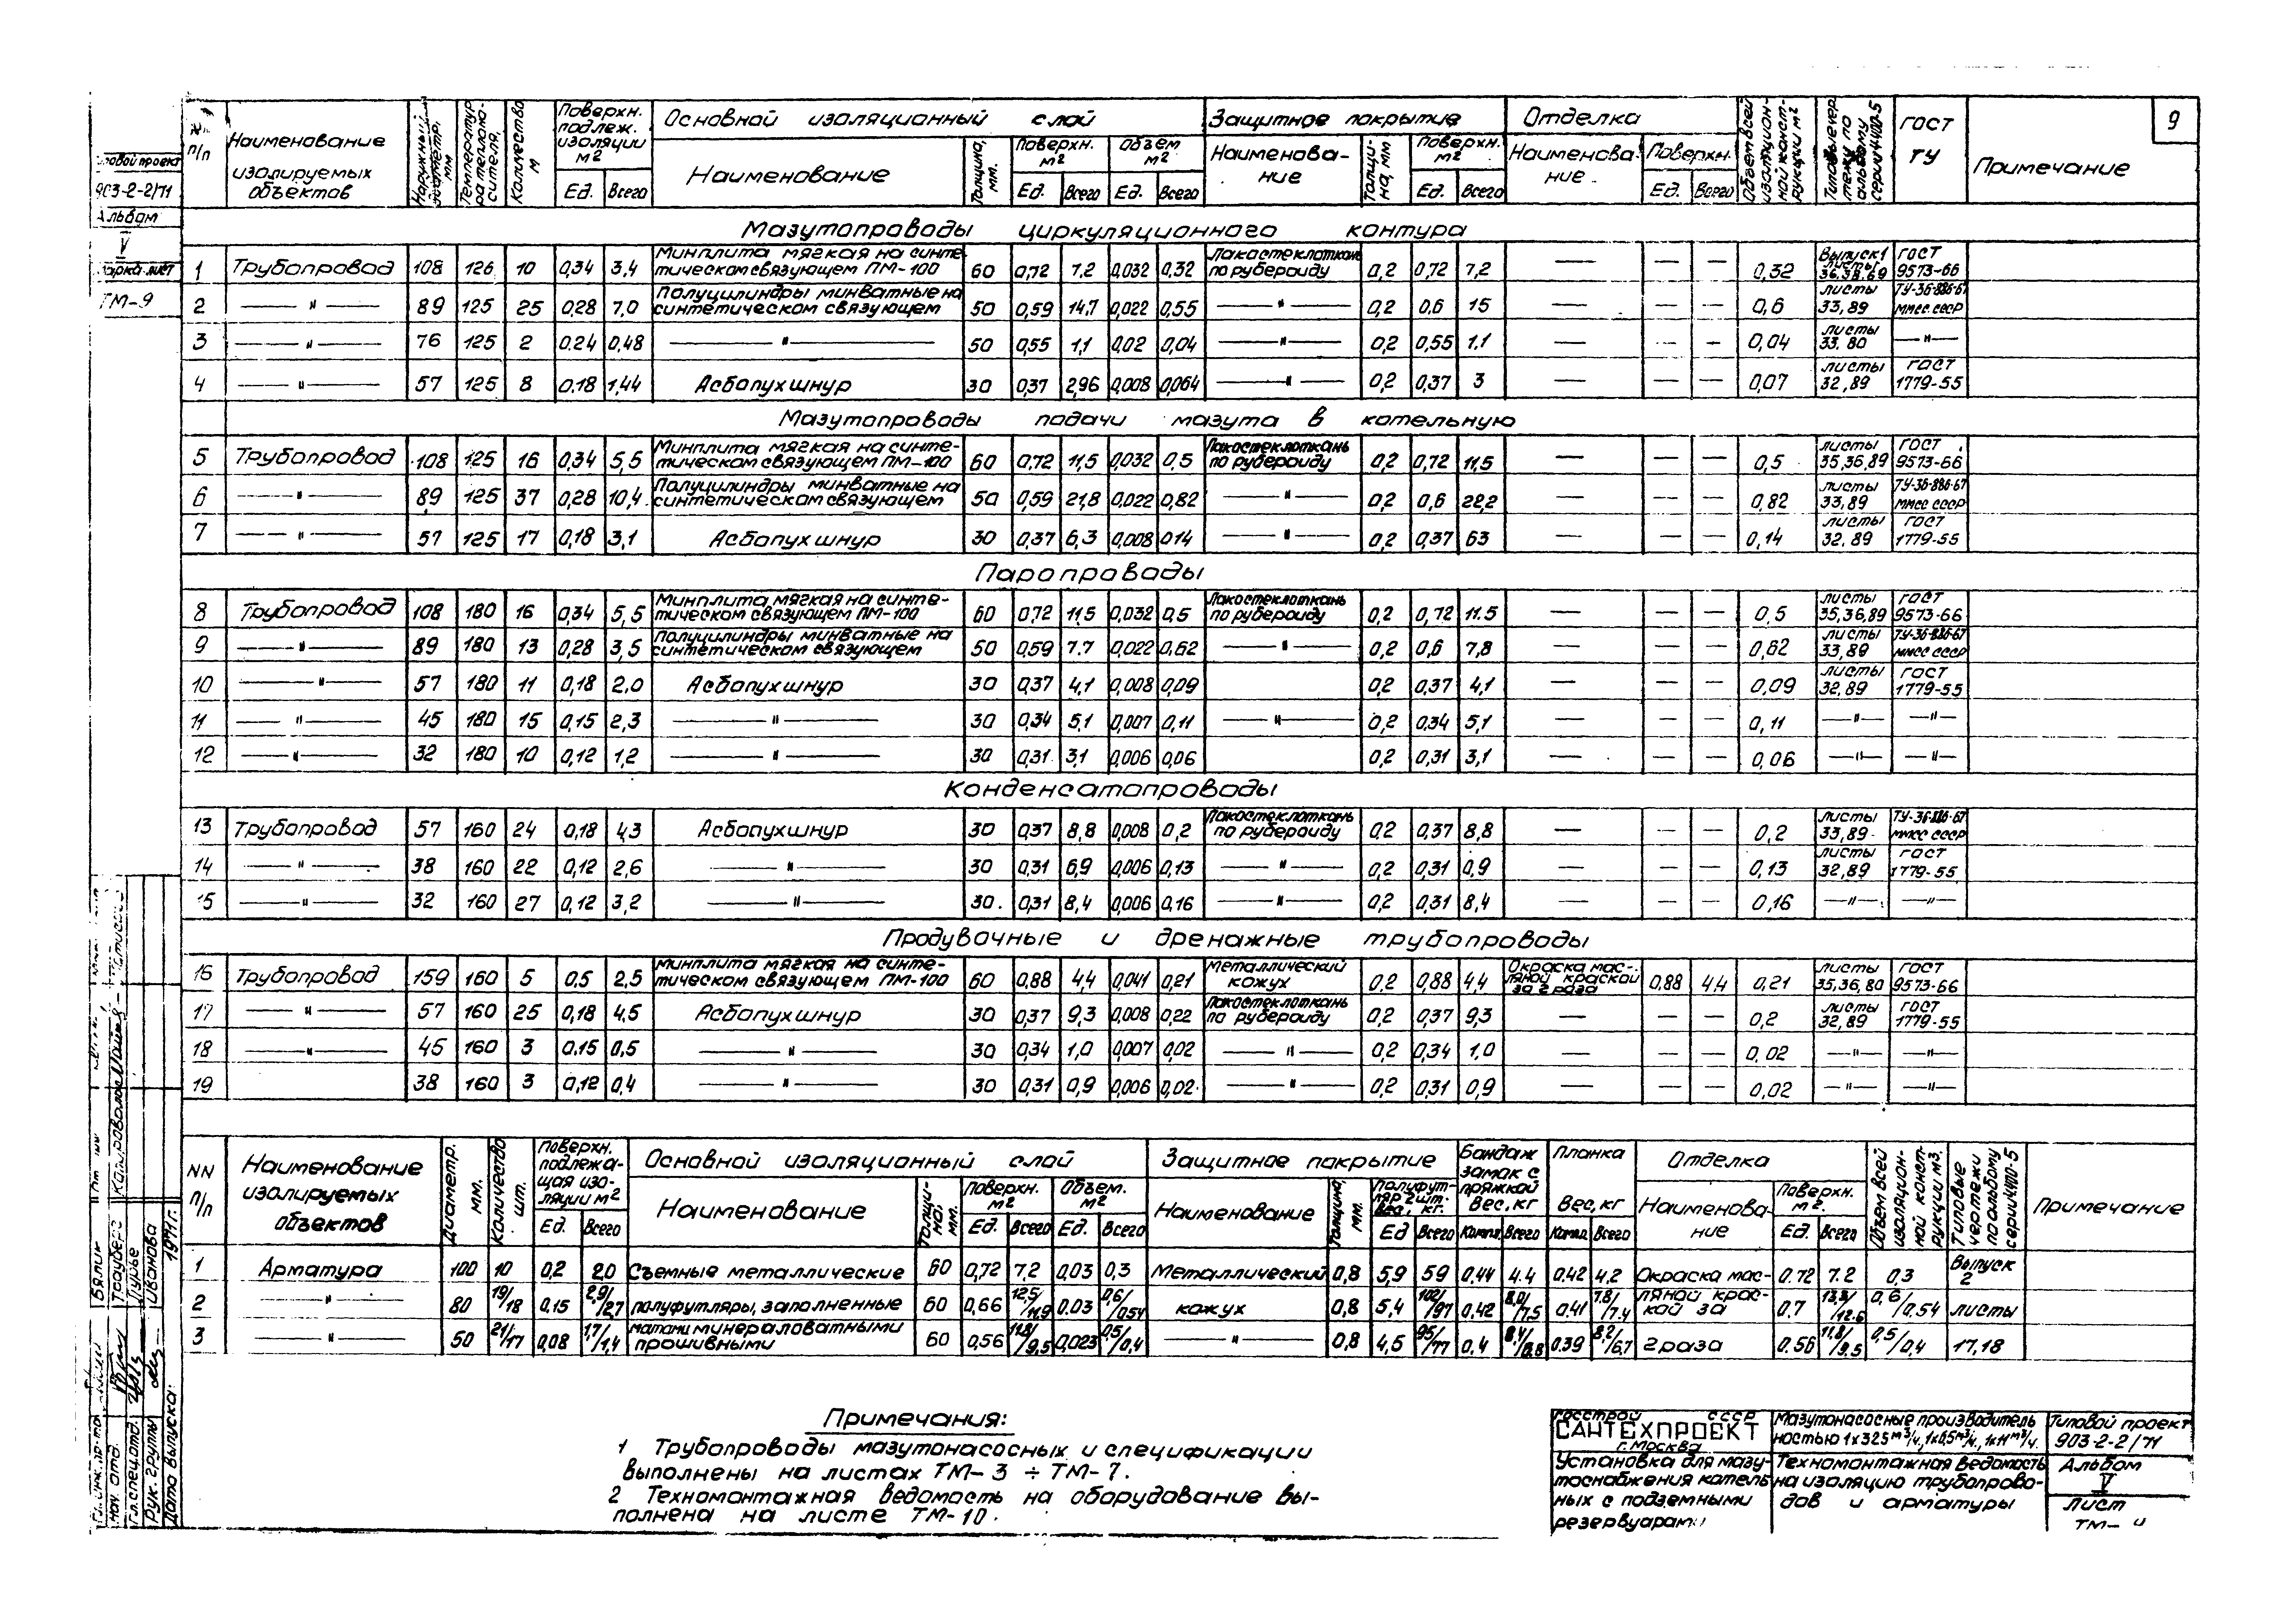 9
№ п/п | Наименование изолируемых объектов | Наружный диаметр, мм | Температура теплоносителя, | Количество м | Поверхн. подлеж. изоляции м2 Ед. Всего | Основной изоляционный слой | Защитное покрытие | Отделка | Объем всей изоляционной конструкции м2 | серии 4.400-5 | ГОСТ ТУ | Примечание
Наименование | Толщина, мм. | Поверхн. м2 Ед. Всего | Объем м2 Ед. Всего | Наименование | Толщина, мм | Поверхн. м2 Ед. Всего | Наименование | Поверхн. Ед. Всего
Мазутопроводы циркуляционного контура
1 Трубопровод 108 126 10 0,34 3,4 Минплита мягкая на синтетическом связующем ПМ-100 60 0,72 7.2 0,032 0,32 Лакостеклоткань по рубероиду 0,2 0,72 7,2 — — — 0,32 Выпуск 1 листы 36.38.69 ГОСТ 9573-66
2 —"— 89 125 25 0,28 7,0 Полуцилиндры минватные на синтетическом связующем 50 0,59 14,7 0,022 0,55 —"— 0,2 0,6 15 — — — 0,6 листы 33,89 ТУ-36-886-67 ММСС СССР
3 —"— 76 125 2 0.24 0,48 —"— 50 0,55 1,1 0,02 0,04 —"— 0,2 0,55 1.1 — — — 0,04 листы 33. 80 —"—
4 —"— 57 125 8 0.18 1,44 Асбопухшнур 30 0,37 2,96 0,008 0,064 —"— 0,2 0,37 3 — — — 0,07 листы 32,89 ГОСТ 1779-55
Мазутопроводы подачи мазута в котельную
5 Трубопровод 108 125 16 0,34 5,5 Минплита мягкая на синтетическом связующем ПМ-100 60 0,72 11,5 0,032 0,5 Лакостеклоткань по рубероиду 0,2 0,72 11,5 — — — 0,5 листы 35,36,89 ГОСТ 9573-66
6 —"— 89 125 37 0,28 10,4 Полуцилиндры минватные на синтетическом связующем 50 0,59 21,8 0,022 0,82 —"— 0,2 0,6 22,2 — — — 0,82 листы 33,89 ТУ-36-886-67 ММСС СССР
7 —"— 57 125 17 0,18 3,1 Асбопухшнур 30 0,37 6,3 0,008 0.14 —"— 0,2 0,37 63 — — — 0,14 листы 32.89 ГОСТ 1779-55
Паропроводы
8 Трубопровод 108 180 16 0,34 5,5 Минплита мягкая на синтетическом связующем ПМ-100 60 0,72 11,5 0,032 0,5 Лакостеклоткань по рубероиду 0,2 0,72 11.5 — — — 0,5 листы 35,36,89 ГОСТ 9573-66
9 —"— 89 180 13 0,28 3,5 Полуцилиндры минватные на синтетическом связующем 50 0,59 7.7 0,022 0,62 —"— 0,2 0,6 7,8 — — — 0,62 листы 33,89 ТУ-36-886-67 ММСС СССР
10 —"— 57 180 11 0,18 2,0 Асбопухшнур 30 0,37 4,1 0,008 0,09 0,2 0,37 4,1 — — — 0,09 листы 32,89 ГОСТ 1779-55
11 —"— 45 180 15 0,15 2,3 —"— 30 0,34 5,1 0,007 0,11 —"— 0,2 0,34 5,1 — — — 0,11 —"— —"—
12 —"— 32 180 10 0,12 1,2 —"— 30 0,31 3,1 0,006 0,06 0,2 0,31 3,1 — — — 0,06 —"— —"—
Конденсатопроводы
13 Трубопровод 57 160 24 0,18 4,3 Асбопухшнур 30 0,37 8,8 0,008 0,2 Лакостеклоткань по рубероиду 0,2 0,37 8,8 — — — 0,2 листы 33,89 ТУ-36-886-67 ММСС СССР
14 —"— 38 160 22 0,12 2,6 —"— 30 0,31 6,9 0,006 0,13 —"— 0,2 0,31 0,9 — — — 0,13 листы 32,89 ГОСТ 1779-55
15 —"— 32 160 27 0,12 3,2 —"— 30. 0,31 8,4 0,006 0,16 —"— 0,2 0,31 8,4 — — — 0,16 —"— —"—
Продувочные и дренажные трубопроводы
16 Трубопровод 159 160 5 0,5 2,5 Минплита мягкая на синтетическом связующем ПМ-100 60 0,88 4,4 0,041 0,21 Металлический кожух 0,2 0,88 4,4 Окраска масляной краской за 2 раза 0,88 4,4 0,21 листы 35,36,80 ГОСТ 9573-66
17 —"— 57 160 25 0,18 4,5 Асбопухшнур 30 0,37 9,3 0,008 0,22 Лакостеклоткань по рубероиду 0,2 0,37 9,3 — — — 0,2 листы 32,89 ГОСТ 1779-55
18 —"— 45 160 3 0.15 0,5 —"— 30 0,34 1,0 0,007 0,02 —"— 0,2 0,34 1,0 — — — 0,02 —"— —"—
19 38 160 3 0,12 0,4 —"— 30 0,31 0,9 0,006 0,02 —"— 0,2 0,31 0,9 — — — 0,02 —"— —"—
NN п/п | Наименование изолируемых объектов | Диаметр. мм. | Количество шт. | Поверхн. подлежащая изоляции м2 Ед. Всего | Основной изоляционный слой | Защитное покрытие | Бандаж замак с пряжкой Вес, кг Компл. Всего | Планка Вес, кг Компл. Всего | Отделка | Объем всей изоляционной конструкции м3, | Типовые чертежи по альбому серии 4.400-5 | Примечание
Наименование | Толщина, мм. | Поверхн. м2 Ед. Всего | Объем. м2 Ед. Всего | Наименование | Толщина, мм. | Полуфутляр 2 шт. Вес, кг. Ед Всего | Наименование | Поверхн. м2. Ед. Всего
1 Арматура 100 10 0,2 2,0 Съемные металлические 60 0,72 7,2 0,03 0,3 Металлический 0,8 5,9 59 0,44 4.4 0.42 4,2 Окраска мас- 0.72 7.2 0,3 Выпуск 2
2 —"— 80 19/18 0,15 2,9/2,7 полуфутляры, заполненные 60 0,66 12,5/11,9 0,03 0,6/0,54 кожух 0,8 5,4 102/97 0,42 8,0/7,5 0,41 7.8/7.4 ляной краской за 0.7 13,3/12.6 0,6/0.54 листы
3 —"— 50 21/17 0,08 1,7/1,4 матами минераловатными прошивными 60 0,56 11,8/9,5 0,023 0,5/0,4 —"— 0,8 4,5 95/77 0,4 8.4/6.8 0.39 8,2/6.7 2 раза 0.56 11.8/9.5 0,5/0,4 17,18
Примечания:
1 Трубопроводы мазутонасосных и спецификации
выполнены на листах ТМ-3 ÷ ТМ-7.
2 Техномонтажная ведомость на оборудование вы-
полнена на листе ТМ-10.
Госстрой СССР
САНТЕХПРОЕКТ
г. Москва
Мазутонасосные производитель
ностью 1х3.25 м³/ч, 1х6,5 м³/ч, 1х11 м³/ч.
Типовой проект
903-2-2/71
Установка для мазу-
тоснабжения котель
ных с подземными
резервуарами
Техномонтажная ведомость
на изоляцию трубопрово-
дов и арматуры
Альбом
V
Лист
ТМ-
903-2-2/71
Альбом
V
ТМ-9
Иванова
Дата выпуска:
1971г.